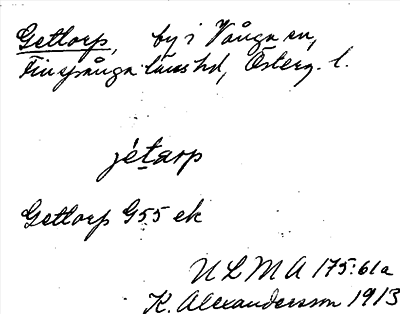 Gettorp, by i Vånga sn,
Finspånga läns hd, Österg. l.
jétarp
Gettorp G55 ek
ULMA 175:61a
K. Alexandersson 1913